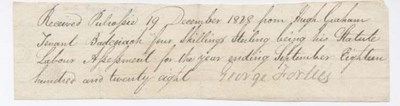 Received Pitcrossie 19 December 1828 from Hugh Graham
Tenant Badcgraph four Shillings Sterling being his Statute
Labour Assessment for the year ending September Eighteen
hundred and twenty eight George Forbes